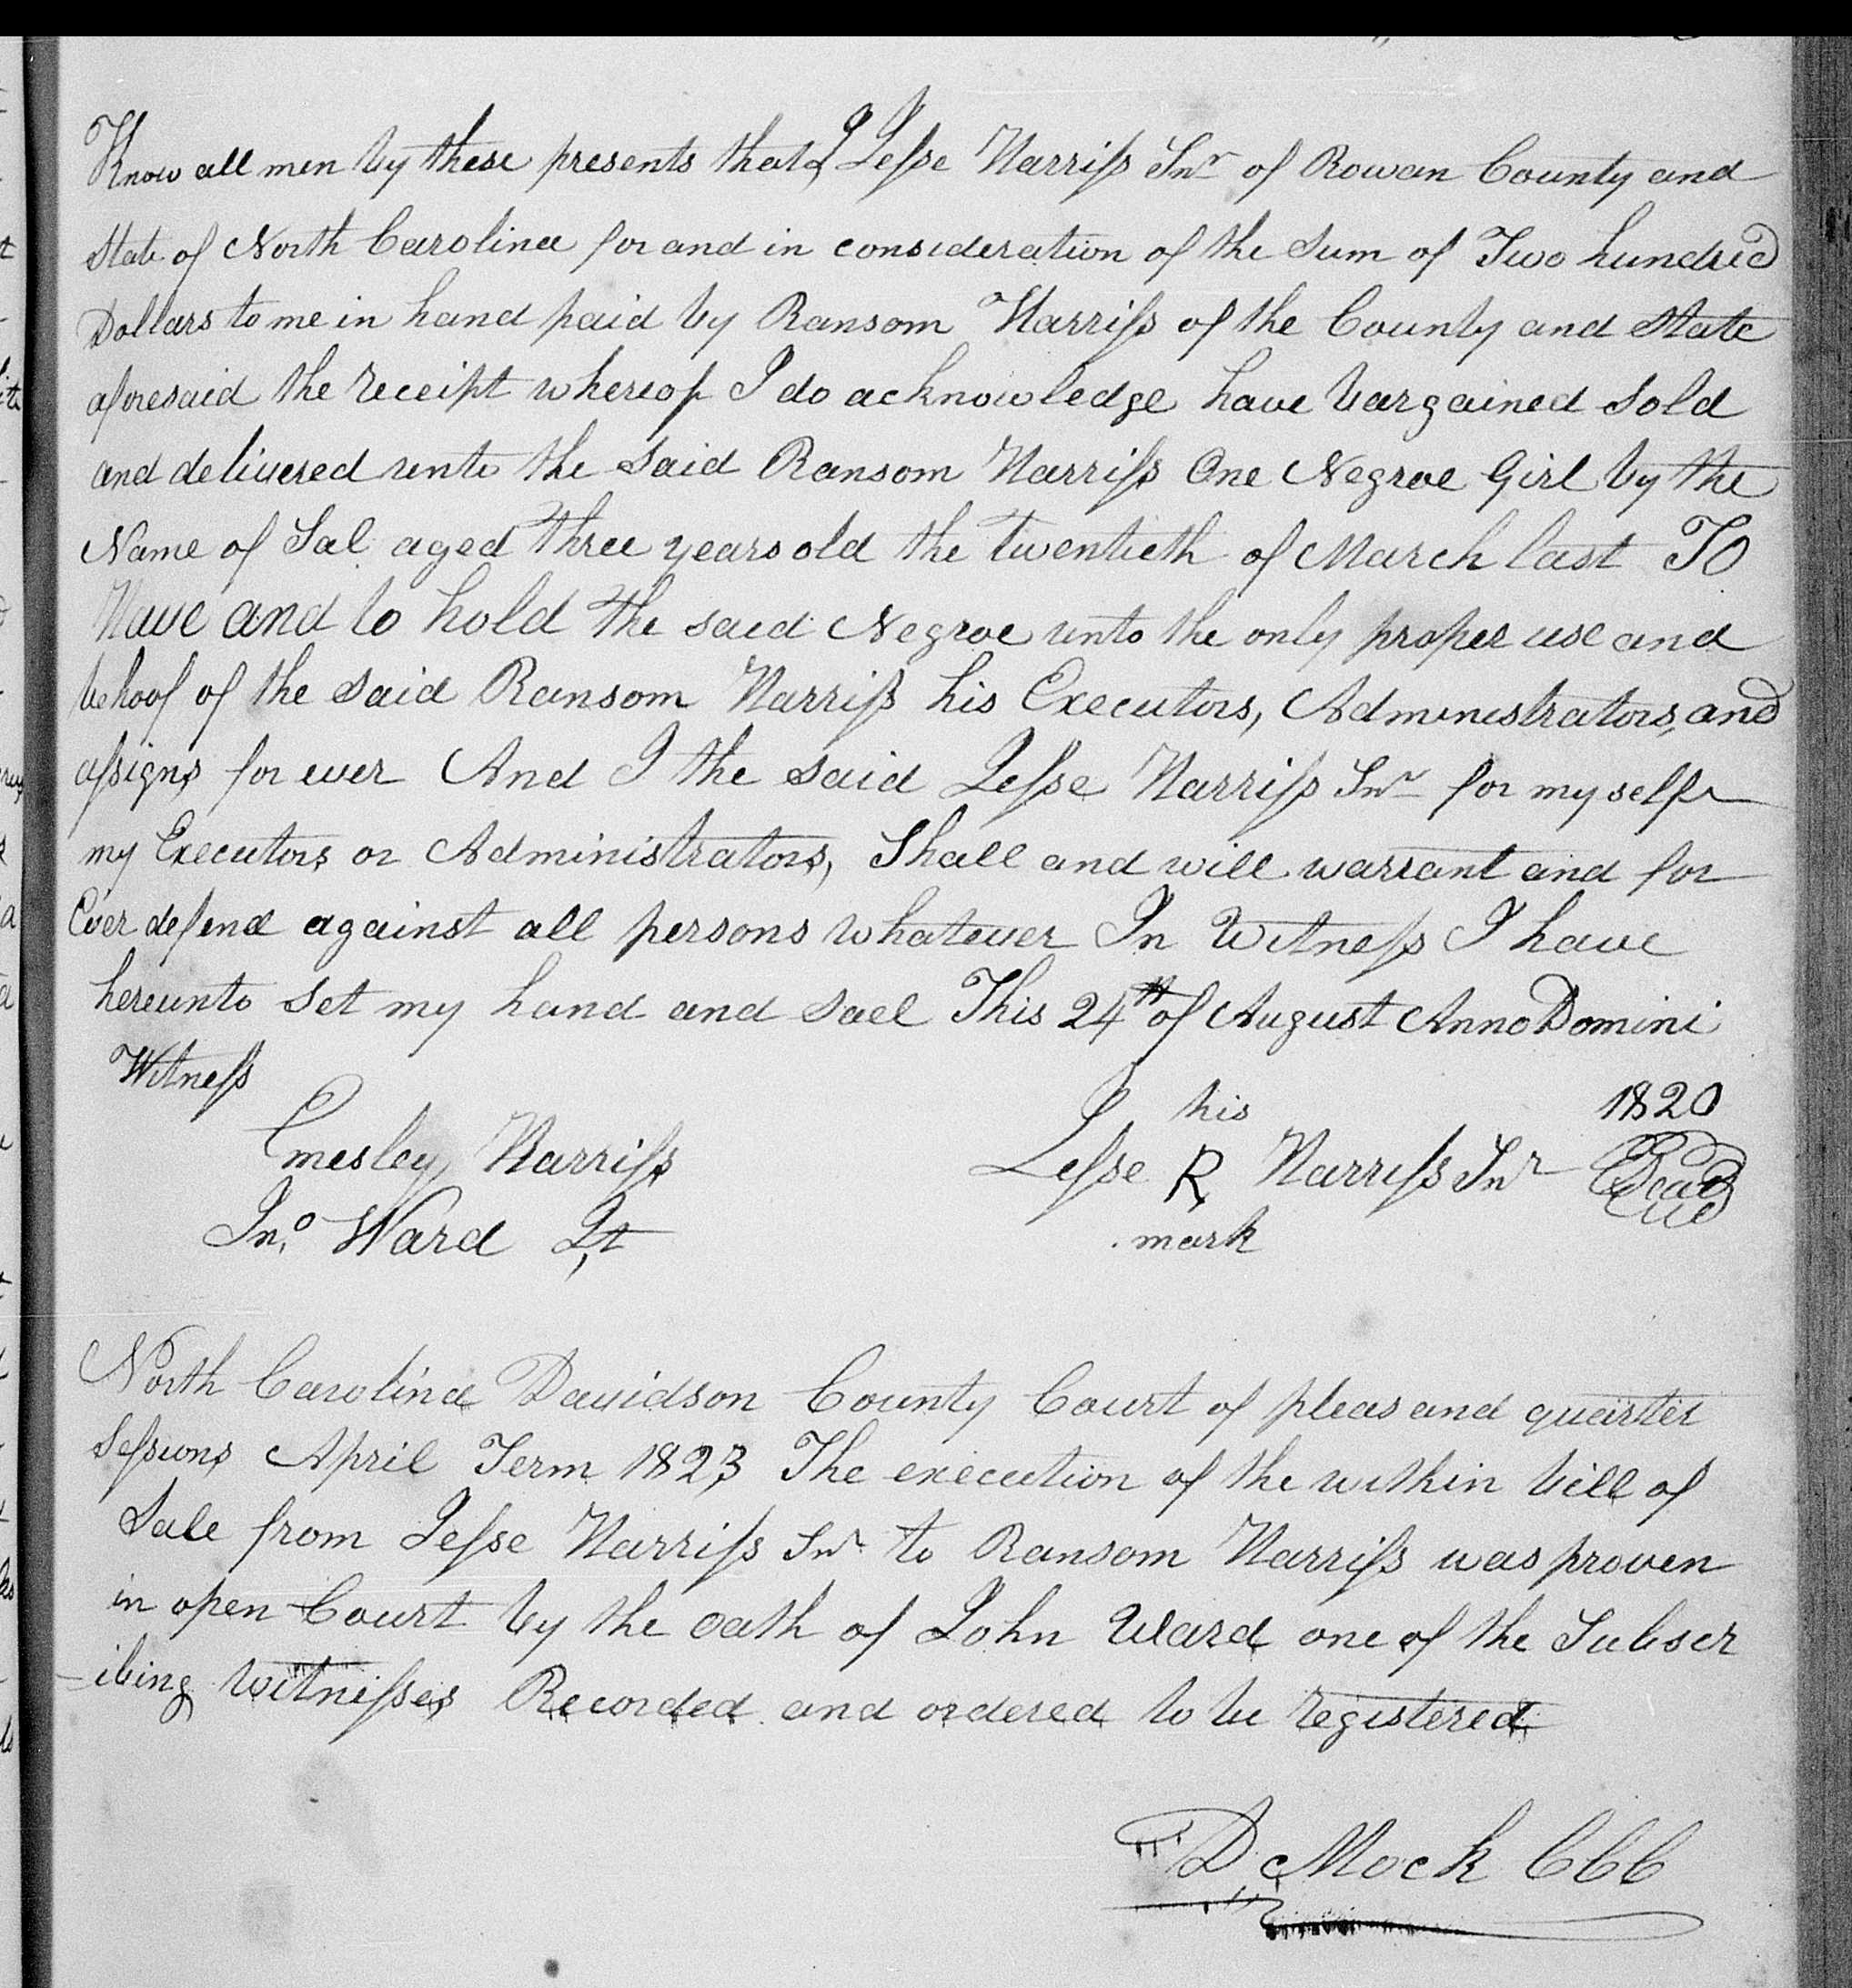 Know all men by these presents that I Jesse Harriss Snr of Rowan County and
State of North Carolina for and in consideration of the Sum of Two hundred
Dollars to me in hand paid by Ransom Harriss of the County and State
aforesaid the receipt whereof I do acknowledge have bargained Sold
and delivered unto the Said Ransom Harriss One Negroe Girl by the
Name of Sal aged three years old the twentieth of March last To
Have and to hold the said Negroe unto the only proper use and
behoof of the said Ransom Harriss his Executors, Administrators, and
assigns for ever And I the said Jesse Harriss Snr for my self
my Executors or Administrators, Shall and will warrant and for
Ever defend against all persons whatever In Witness I have
hereunto Set my hand and Sael This 24th of August Anno Domini
Witness
his 1820
Emesley Harriss Jesse R Harriss Snr Seal
Jno Ward Jt mark
North Carolina Davidson County Court of pleas and quarter
Sessions April Term 1823 The execution of the within bill of
Sale from Jesse Harriss Snr to Ransom Harriss was proven
in open Court by the oath of John Ward one of the Subscr
-ibing witnesses Recorded and ordered to be registered
D Mock CCC